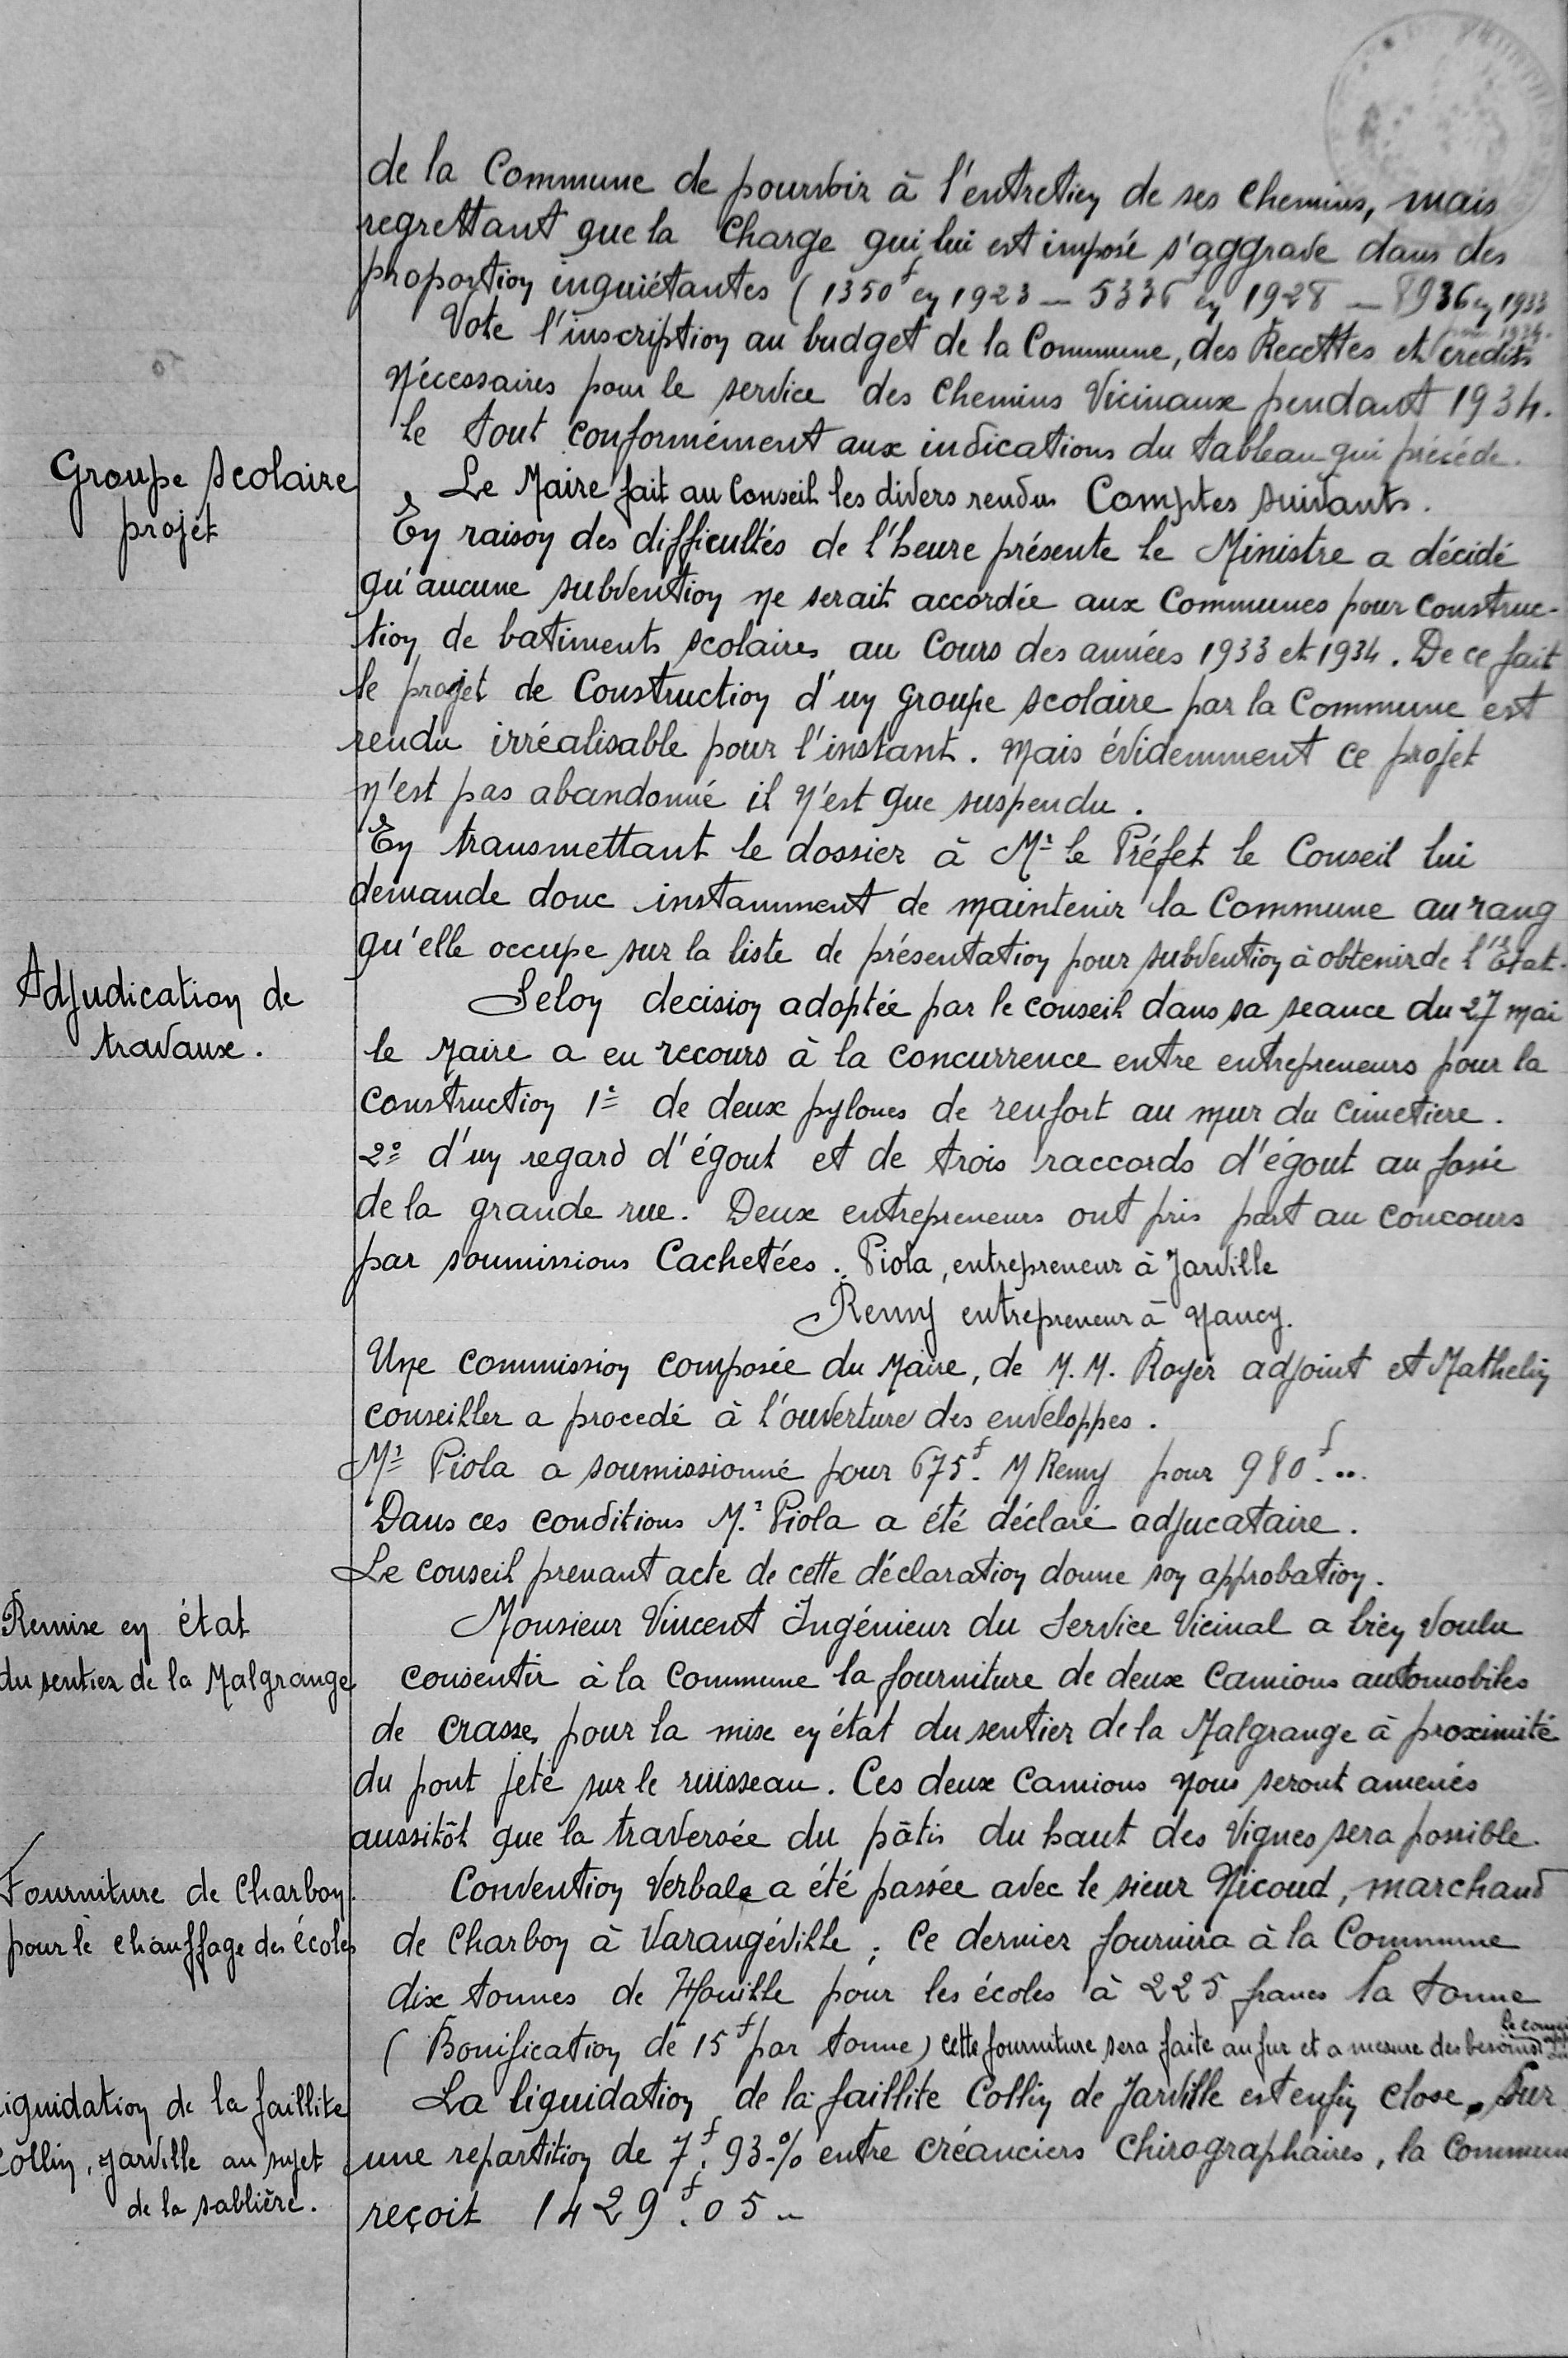 de la Commune de pourvoir à l'entretien de ses chemins, mais
regrettant que la charge qui lui est imposé s'aggrave dans des
proportion inquiétantes (1350f en 1923 - 5336 en 1928 - 8936 en 1933
Vote l'inscription au budget de la Commune, des Recettes et crédits
nécessaires pour le service des chemins Vicinaux pendant 1934.
le tout conformément aux indications du tableau qui précéde.
Groupe scolaire
projet
Le Maire fait au Conseil les divers rendus Comptes suivants.
En raison des difficultés de l'heure présente le Ministre a décidé
qu'aucune subvention ne serait accordée aux Communes pour construc-
tion de batiments scolaires au Cours des années 1933 et 1934. De ce fait
le projet de Construction d'un groupe scolaire par la Commune est
rendu irréalisable pour l'instant. Mais évidemment ce projet
n'est pas abandonné il n'est que suspendu.
En transmettant le dossier à Mr le Préfet le Conseil lui
demande donc instamment de maintenir la Commune au rang
qu'elle occupe sur la liste de présentation pour subvention à obtenir de l'État.
Adjudication de
travaux.
Selon decision adoptée par le conseil dans sa seance du 27 mai
le Maire a eu recours à la concurrence entre entrepreneurs pour la
construction 1º de deux pylones de renfort au mur du cimetiere.
2º d'un regard d'égout et de trois raccords d'égout au fossé
de la grande rue. Deux entrepreneurs ont pris part au concours
par soumissions Cachetées : Piola, entrepreneur à Jarville
Remy entrepreneur à Nancy.
Une commission composée du Maire, de M.M. Royer adjoint et Mathelin
conseiller a procedé à l'ouverture des enveloppes.
Mr Piola a soumissionné pour 675f. M Remy pour 980f...
Dans ces conditions Mr Piola a été déclaré adjucataire.
Le conseil prenant acte de cette déclaration donne son approbation.
Remise en état
du sentier de la Malgrange
Monsieur Vincent Ingénieur du Service Vicinal a bien voulu
consentir à la Commune la fourniture de deux Camions automobiles
de crasse, pour la mise en état du sentier de la Malgrange à proximité
du pont jeté sur le ruisseau. Ces deux Camions nous seront amenés
aussitôt que la traversée du pâtis du haut des Vignes sera possible.
Fourniture de Charbon.
pour le chauffage des écoles
Convention Verbale a été passée avec le sieur Nicoud, marchand
de Charbon à Varangéville. Ce dernier fournira à la Commune
dix tonnes de Houille pour les écoles à 225 francs la tonne
(Bonification de 15f par tonne) cette fourniture sera faite au fur et a mesure des besoins.
Liquidation de la faillite
Collin, Jarville au sujet
de la sablière.
La liquidation de la faillite Collin de Jarville est enfin close. Sur
une repartition de 7f.93 % entre créanciers chirographaires, la Commune
reçoit 1429f.05